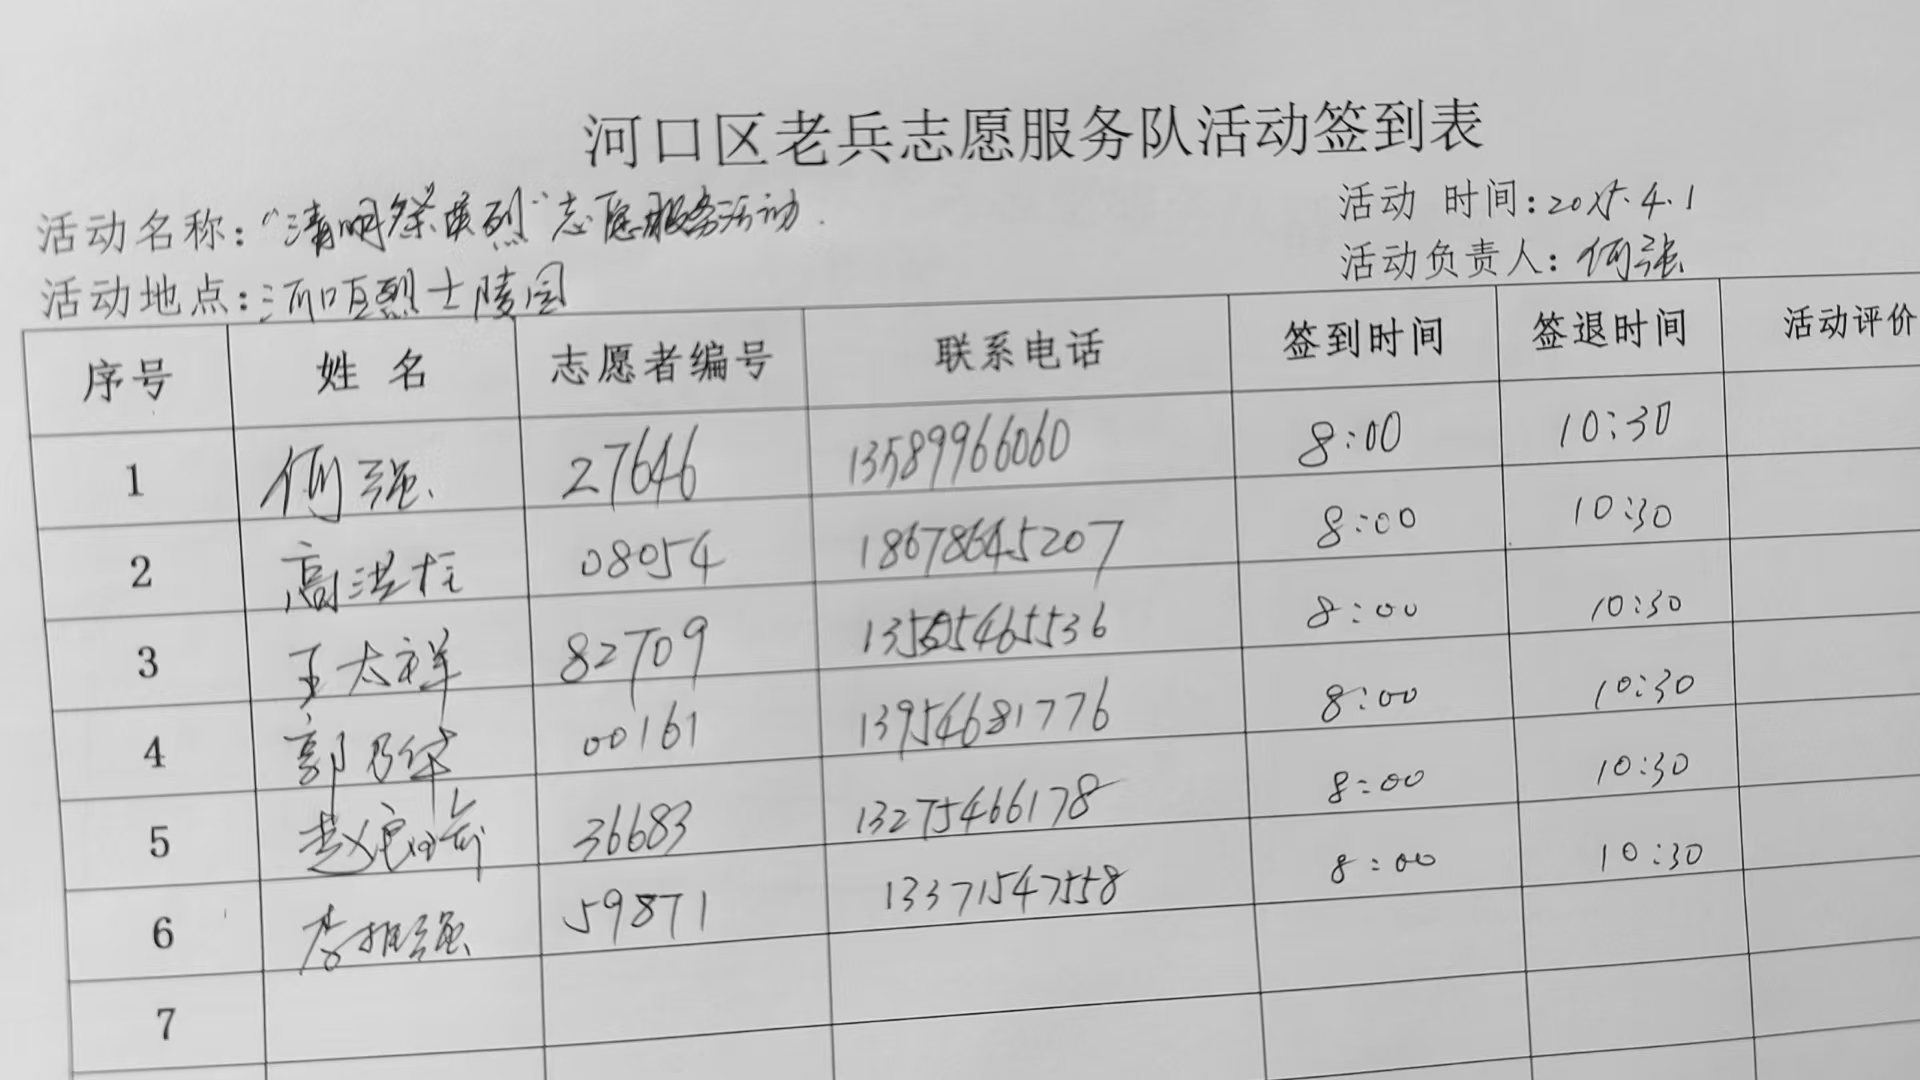 河口区老兵志愿服务队活动签到表
活动名称:“清明祭英烈”志愿服务活动. 活动 时间:2025.4.1
活动地点:河口区烈士陵园 活动负责人:何强
序号 姓 名 志愿者编号 联系电话 签到时间 签退时间 活动评价
1 何强 27646 13589966060 8:00 10:30
2 高洪柱 08054 18678645207 8:00 10:30
3 王太祥 82709 8:00 10:30
4 郭乃华 00161 13954681776 8:00 10:30
5 赵 36683 13275466178 8:00 10:30
6 李 强 59871 13371547558 8:00 10:30
7